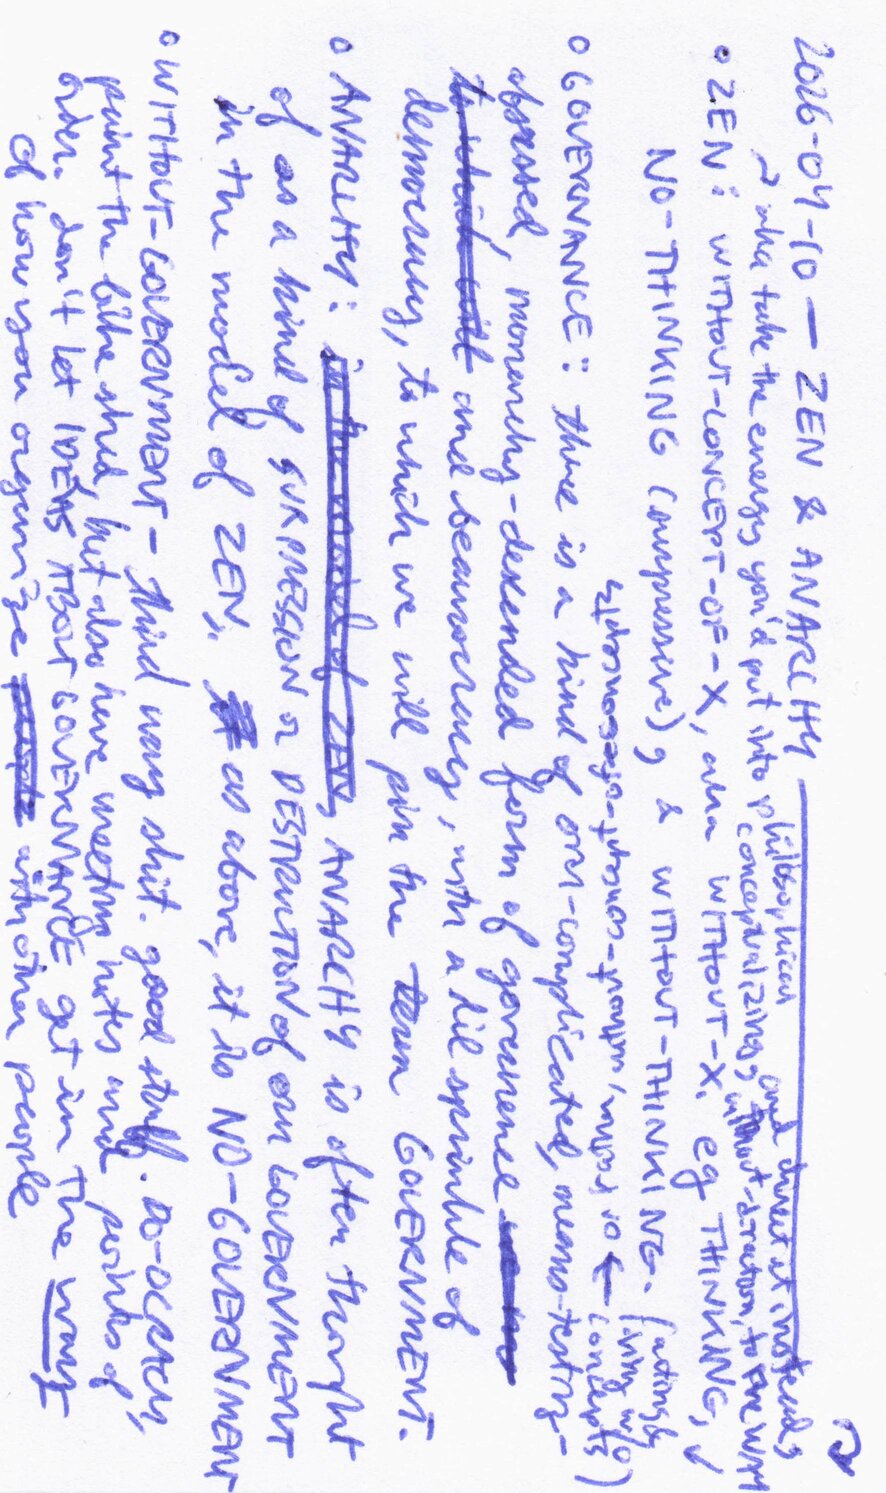 2026-04-10 — ZEN & ANARCHY
~ aka take the energy you'd put into philosophical conceptualizing, and direct it instead, without-direction, to the WAY
o ZEN: WITHOUT-CONCEPT-OF-X, aka WITHOUT-X. eg THINKING,
NO-THINKING (oppressive), & WITHOUT-THINKING. (actingly living w/o concepts)
or rather, without-concept-of-concepts
o GOVERNANCE: there is a kind of over-complicated, means-testing-
obsessed, monarchy-descended form of governence
to which will and beaurocracy, with a lil sprinkle of
democracy, to which we will pin the term GOVERNMENT.
o ANARCHY: in the model of ZEN, ANARCHY is often thought
of as a kind of SUPRESSION or DESTRUCTION of our GOVERNMENT
in the model of ZEN, as above, it is NO-GOVERNMENT
o WITHOUT-GOVERNMENT - third way shit. good stuff. DO-OCRACY,
paint the bike shed, but also have meeting notes and points of
order. don't let IDEAS ABOUT GOVERNANCE get in the way
of how you organize with other people